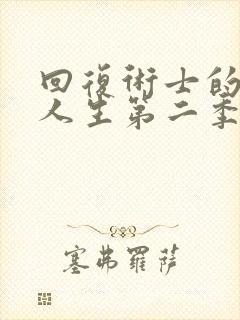 回復術士的
人生第二季
塞弗羅薩